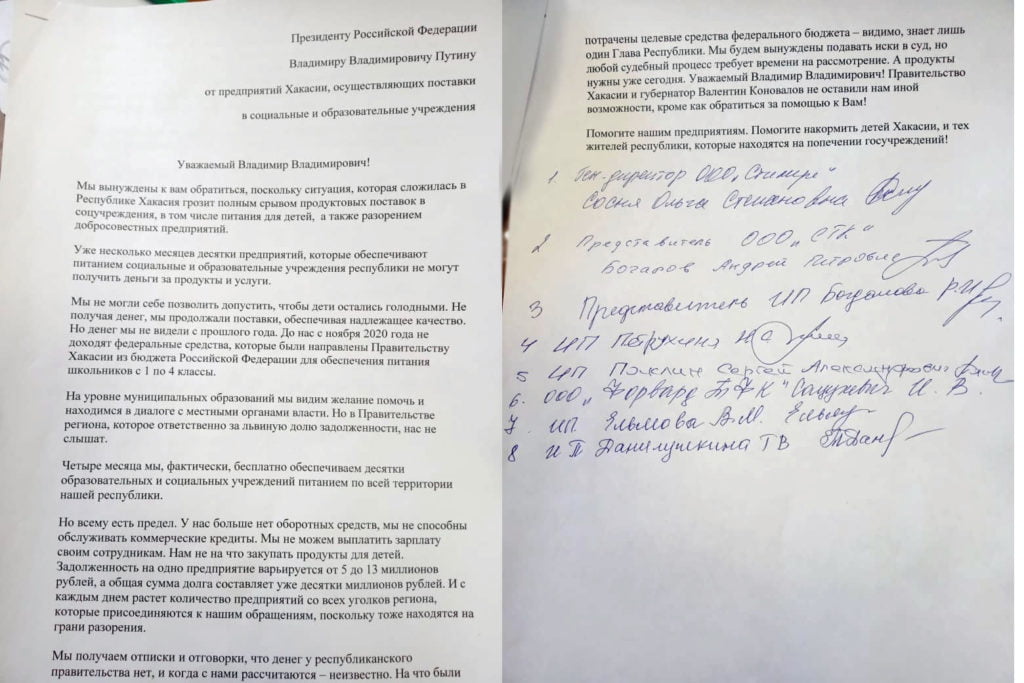 Президенту Российской Федерации
Владимиру Владимировичу Путину
от предприятий Хакасии, осуществляющих поставки
в социальные и образовательные учреждения
Уважаемый Владимир Владимирович!
Мы вынуждены к вам обратиться, поскольку ситуация, которая сложилась в
Республике Хакасия грозит полным срывом продуктовых поставок в
соцучреждения, в том числе питания для детей, а также разорением
добросовестных предприятий.
Уже несколько месяцев десятки предприятий, которые обеспечивают
питанием социальные и образовательные учреждения республики не могут
получить деньги за продукты и услуги.
Мы не могли себе позволить допустить, чтобы дети остались голодными. Не
получая денег, мы продолжали поставки, обеспечивая надлежащее качество.
Но денег мы не видели с прошлого года. До нас с ноября 2020 года не
доходят федеральные средства, которые были направлены Правительству
Хакасии из бюджета Российской Федерации для обеспечения питания
школьников с 1 по 4 классы.
На уровне муниципальных образований мы видим желание помочь и
находимся в диалоге с местными органами власти. Но в Правительстве
региона, которое ответственно за львиную долю задолженности, нас не
слышат.
Четыре месяца мы, фактически, бесплатно обеспечиваем десятки
образовательных и социальных учреждений питанием по всей территории
нашей республики.
Но всему есть предел. У нас больше нет оборотных средств, мы не способны
обслуживать коммерческие кредиты. Мы не можем выплатить зарплату
своим сотрудникам. Нам не на что закупать продукты для детей.
Задолженность на одно предприятие варьируется от 5 до 13 миллионов
рублей, а общая сумма долга составляет уже десятки миллионов рублей. И с
каждым днем растет количество предприятий со всех уголков региона,
которые присоединяются к нашим обращениям, поскольку тоже находятся на
грани разорения.
Мы получаем отписки и отговорки, что денег у республиканского
правительства нет, и когда с нами рассчитаются – неизвестно. На что были
потрачены целевые средства федерального бюджета – видимо, знает лишь
один Глава Республики. Мы будем вынуждены подавать иски в суд, но
любой судебный процесс требует времени на рассмотрение. А продукты
нужны уже сегодня. Уважаемый Владимир Владимирович! Правительство
Хакасии и губернатор Валентин Коновалов не оставили нам иной
возможности, кроме как обратиться за помощью к Вам!
Помогите нашим предприятиям. Помогите накормить детей Хакасии, и тех
жителей республики, которые находятся на попечении госучреждений!
1. Ген. директор ООО „
Ольга Степановна
2 Представитель ООО „СТК"
Андрей Петрович
3 Представитель ИП Богданова Р.И.
4 ИП
5 ИП Сергей Александрович
6. ООО „Форвард БФК" И. В.
7. ИП Ельмова В.М.
8 ИП Данилушкина ТВ